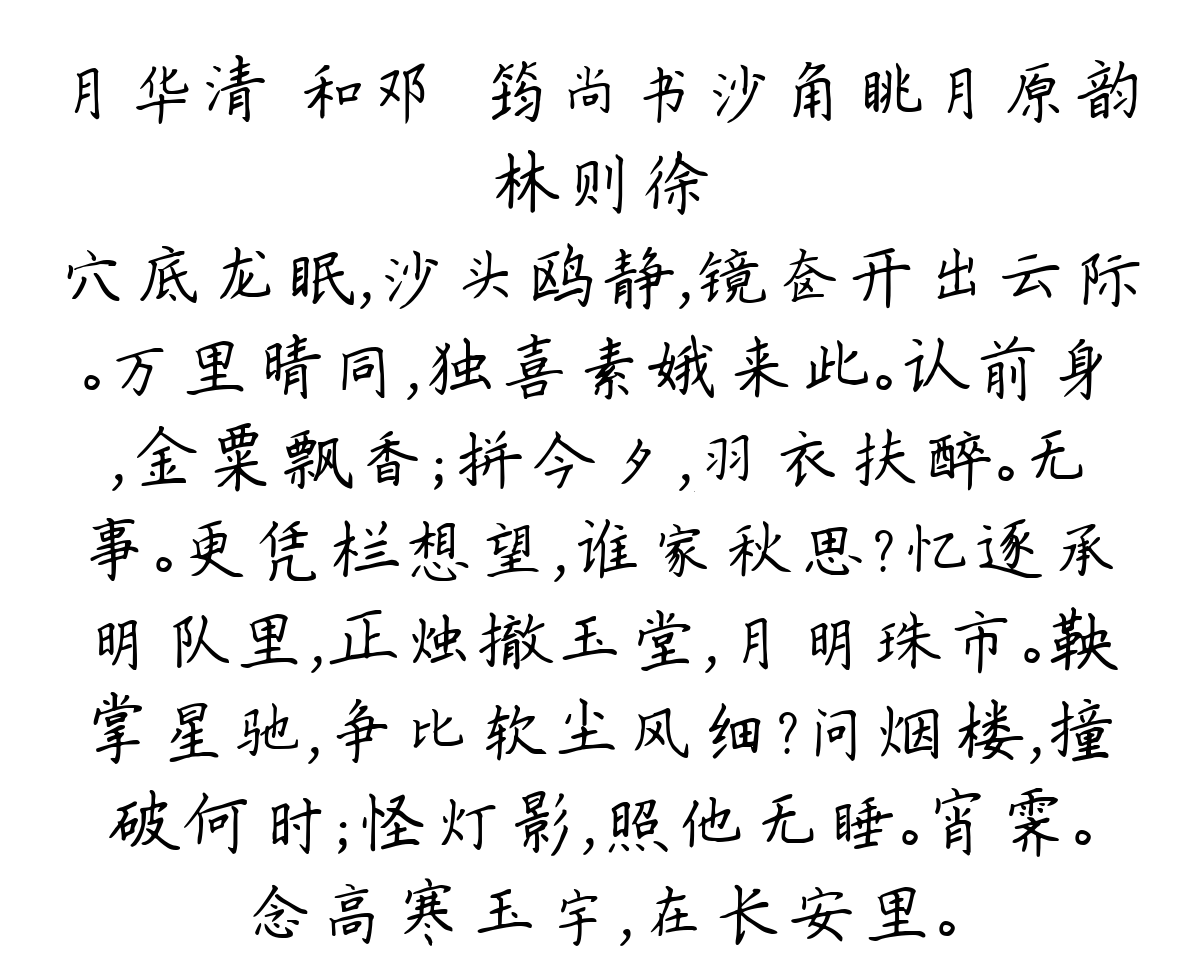 月华清 和邓 筠尚书沙角眺月原韵
林则徐
穴底龙眠,沙头鸥静,镜奁开出云际
。万里晴同,独喜素娥来此。认前身
,金粟飘香;拼今夕,羽衣扶醉。无
事。更凭栏想望,谁家秋思?忆逐承
明队里,正烛撤玉堂,月明珠市。鞅
掌星驰,争比软尘风细?问烟楼,撞
破何时;怪灯影,照他无睡。宵霁。
念高寒玉宇,在长安里。